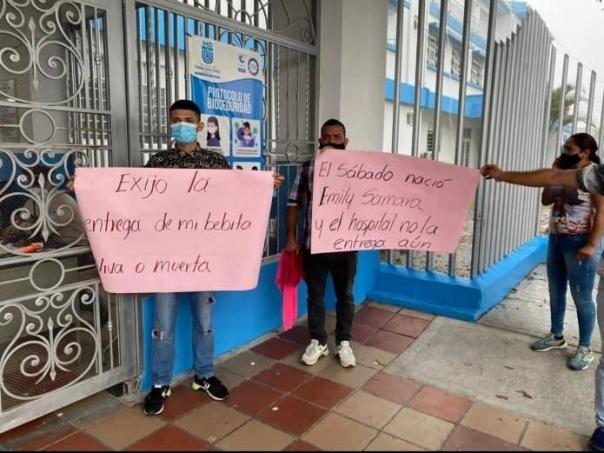 PROTOCOLO DE
BIOSEGURIDAD
Exijo la
entrega de mi bebita
viva o muerta
El Sábado nació
Emily Samara
y el hospital no la
entrega aún